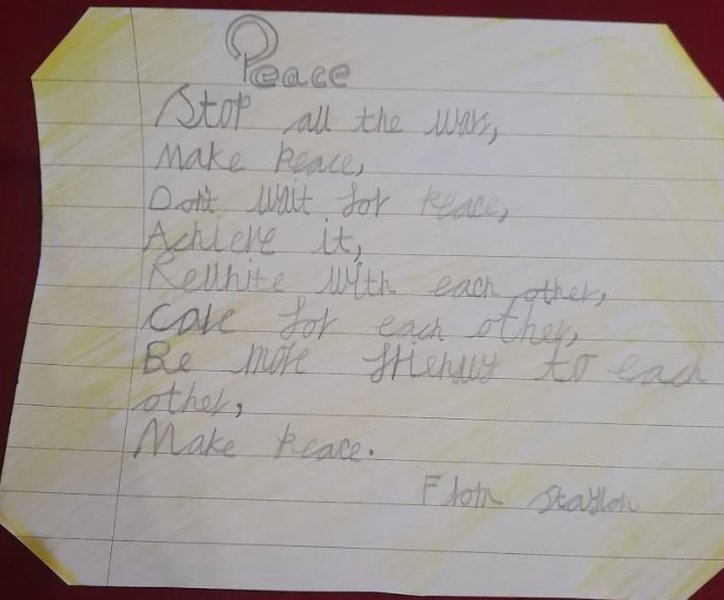 Peace
Stop all the wars,
Make Peace,
Don't wait for Peace,
Achieve it,
Reunite with each other,
Care for each other,
Be more friendly to each
other,
Make Peace.
From